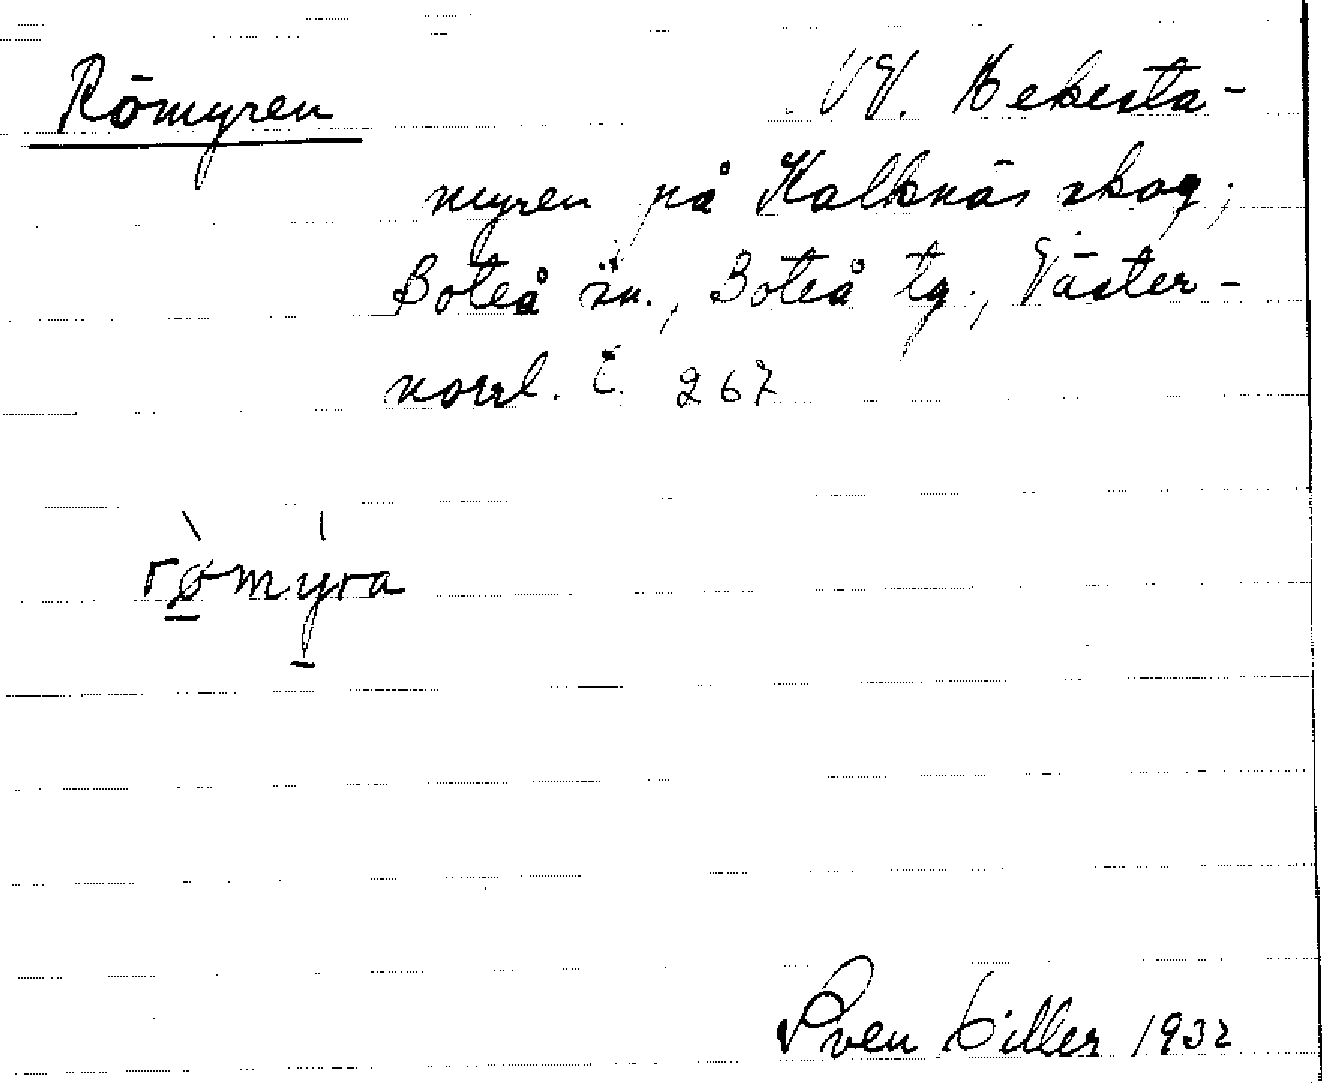 Römyren VV. Hekesta-
myren på Kalknäs skog,
Boteå sn., Boteå tg., Väster-
norrl. l. 267
rømyra
Sven Hiller 1932